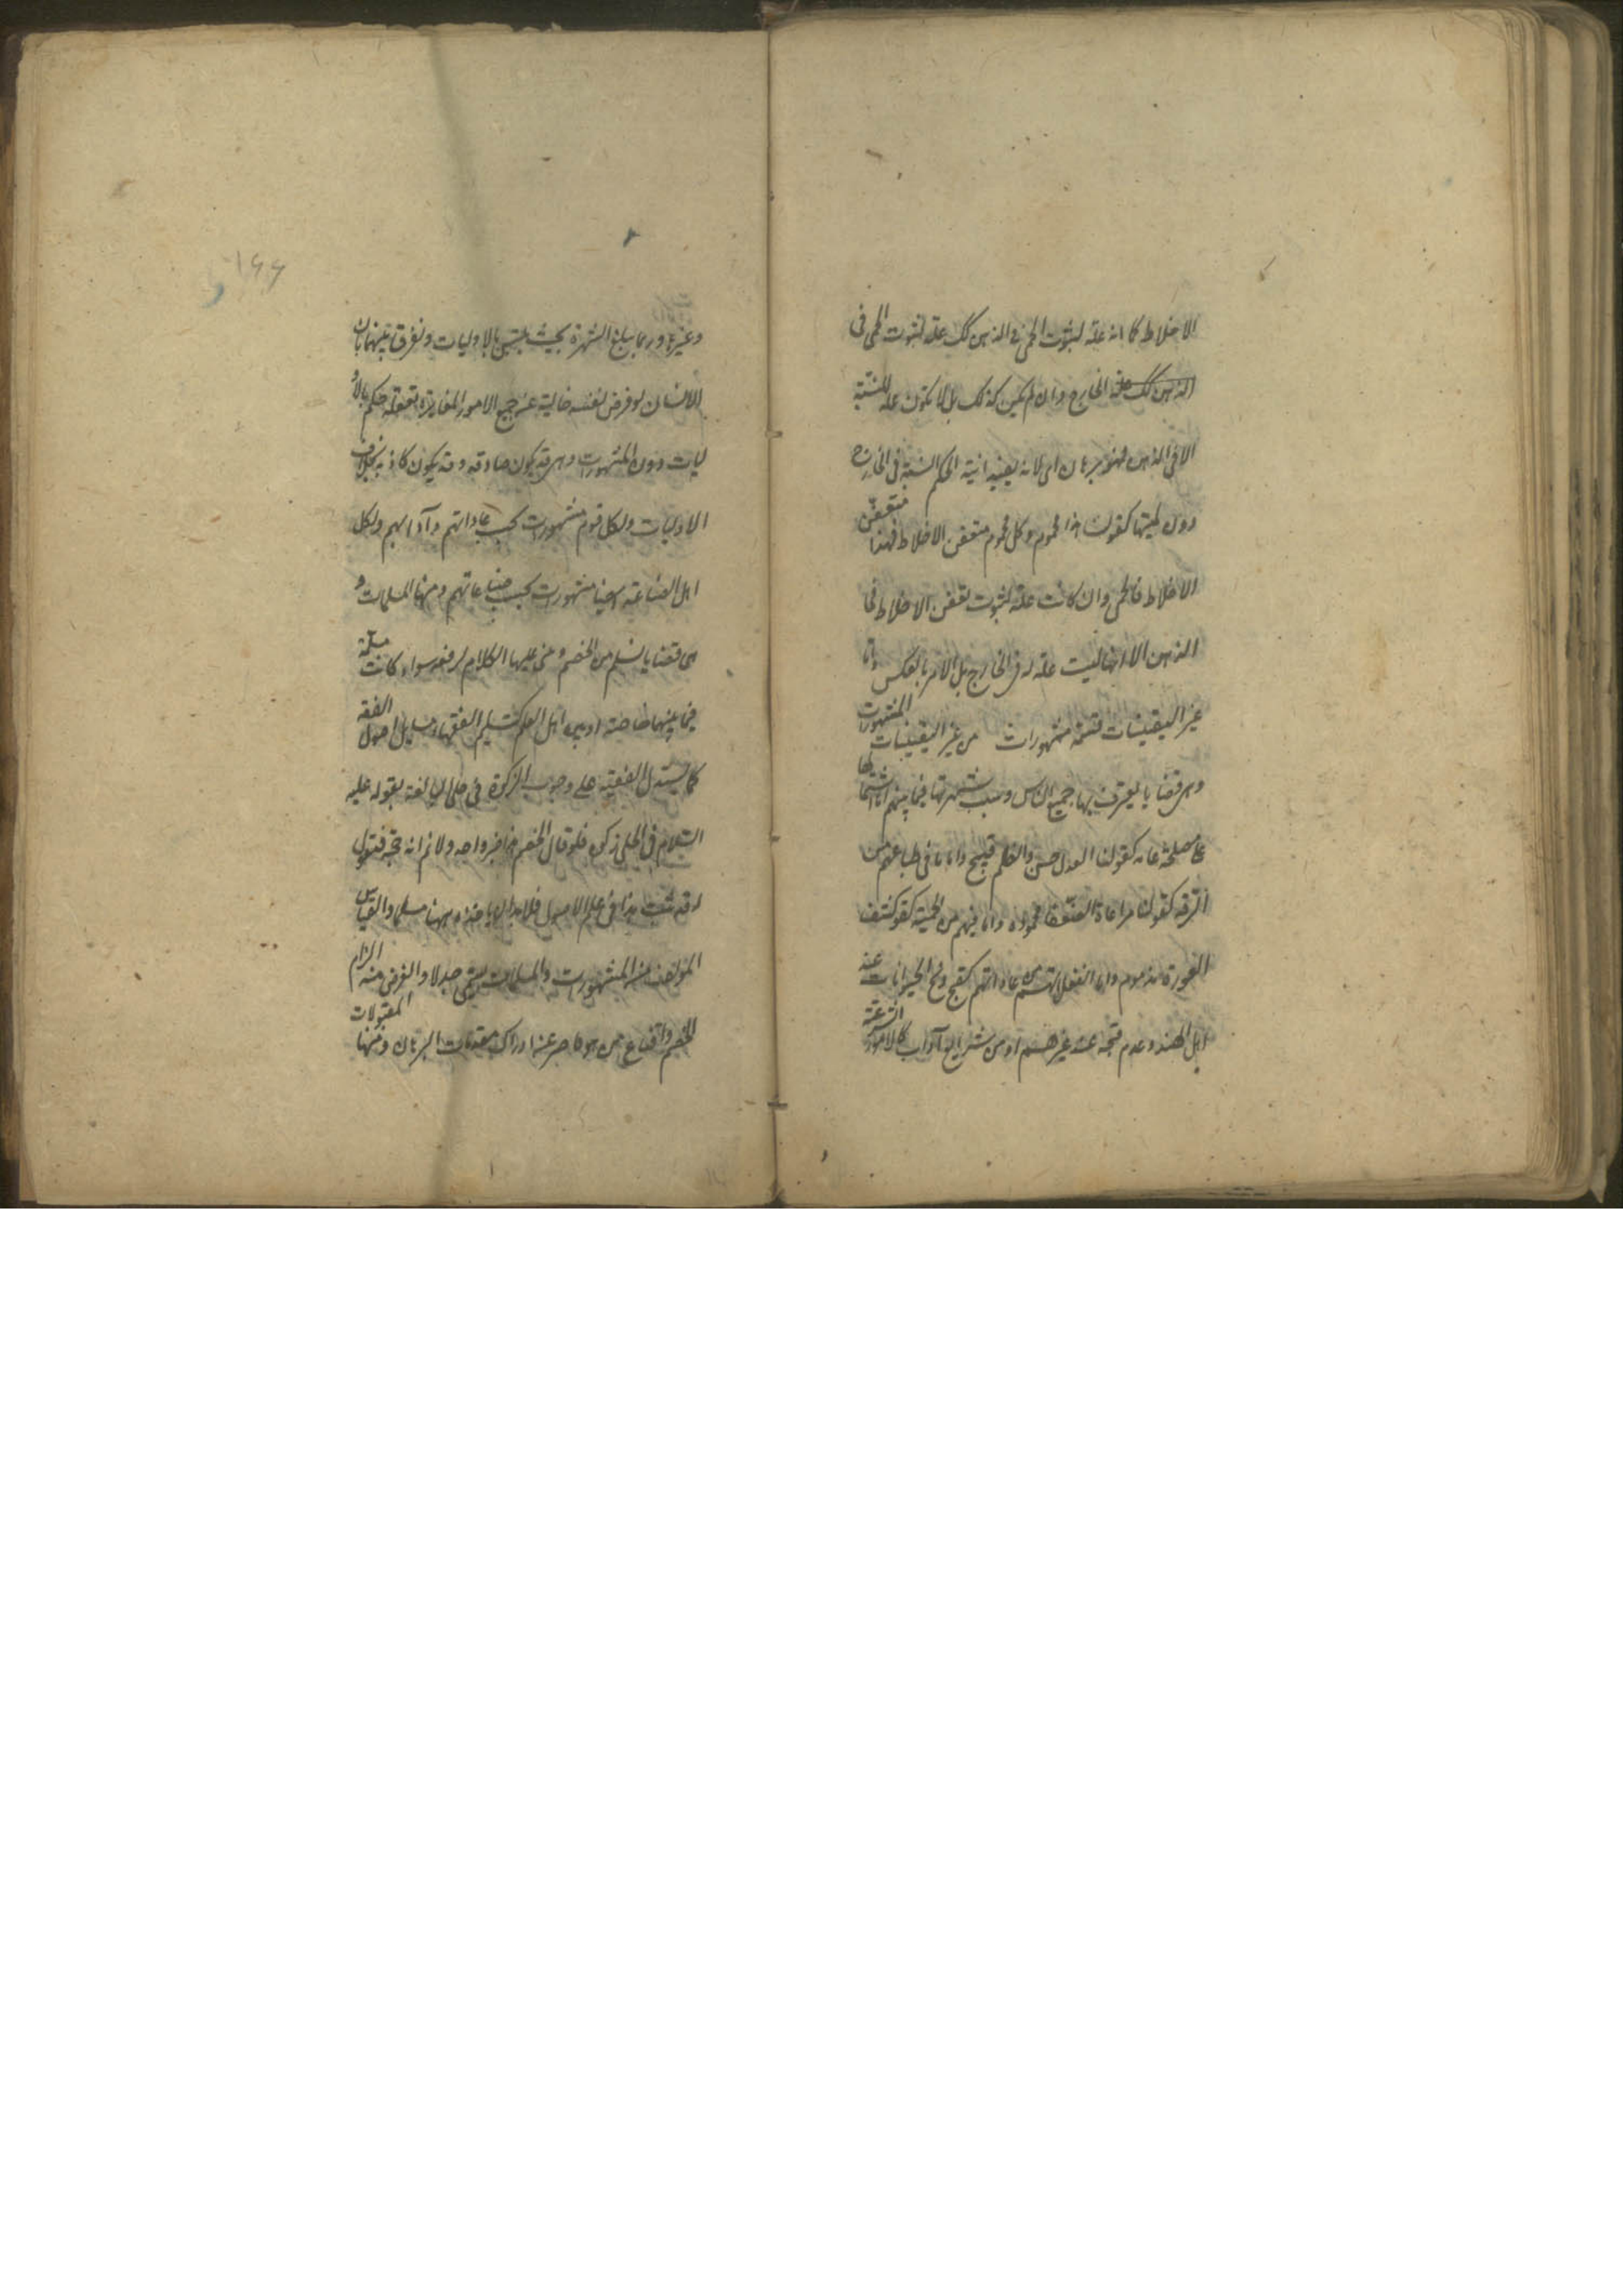 الاخلاط كما انه علة لثبوت الحمى فى الذهن كك علة لثبوت الحمى فى
الذهن كك علة الخارج وان لم يكن كذلك بل لا يكون علة للنسبة
الا فى الذهن فهو برهان انى لانه يفيد انية الحكم النسبة فى الخارج
دون لميتها كقولنا هذا محموم وكل محموم متعفن الاخلاط فهذا متعفن
الاخلاط فالحمى وان كانت علة لثبوت تعفن الاخلاط فى
الذهن الا انها ليست علة له فى الخارج بل الامر بالعكس واما
غير اليقينيات فستة مشهورات من غير اليقينيات المشهورات
وهى قضايا يعترف بها جميع الناس وسبب شهرتها فيما بينهم اما اشتمالها
على مصلحة عامة كقولنا العدل حسن والظلم قبيح واما ما فى طباعهم من
الرقة كقولنا مراعاة الضعفاء محمودة واما فيهم من الحمية كقولنا كشف
العورة مذموم واما انفعالاتهم من عاداتهم كقبح ذبح الحيوانات عند
اهل الهند وعدم قبحه عند غيرهم او من شرايع وآداب كالامور الشرعية
وغيرها وربما يبلغ الشهرة بحيث يلتبس بالاوليات ونفرق بينهما بان
الانسان لو فرض لنفسه خالية عن جميع الامور المغايرة لعقله حكم بالاو
ليات دون المشهورات وهى قد يكون صادقة وقد يكون كاذبة بخلاف
الاوليات ولكل قوم مشهورات بحسب عاداتهم وآدابهم ولكل
اهل الصناعة ايضا مشهورات بحسب صناعاتهم ومنها المسلمات و
هى قضايا تسلم من الخصم و يبنى عليها الكلام لدفعه سواء كانت مسلمة
فيما بينهما خاصة او بين اهل العلم كتسليم الفقهاء مسايل اصول الفقه
كما يستدل الفقيه على وجوب الزكوة فى حلى البالغة بقوله عليه
السلام فى الحلى زكوة فلو قال الخصم هذا خبر واحد ولا نم انه حجة فنقول
له قد ثبت هذا فى علم الاصول فلا بد ان ياخذه ههنا مسلما والقياس
المؤلف من المشهورات والمسلمات يسمى جدلا والغرض منه الزام
الخصم واقناع من هو قاصر عن ادراك مقدمات البرهان ومنها المقبولات
۱۶۶